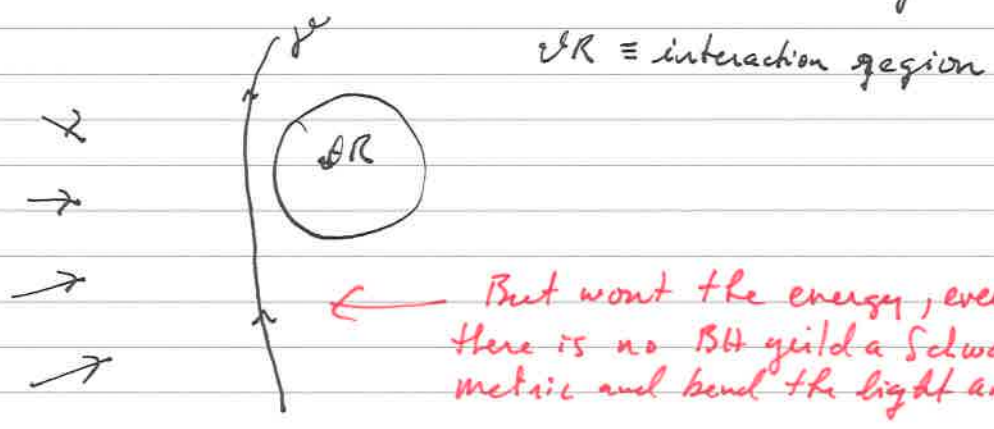 γ
IR ≡ interaction region
IR
But wont the energy, even
there is no BH yeild a Schwa
metric and bend the light a